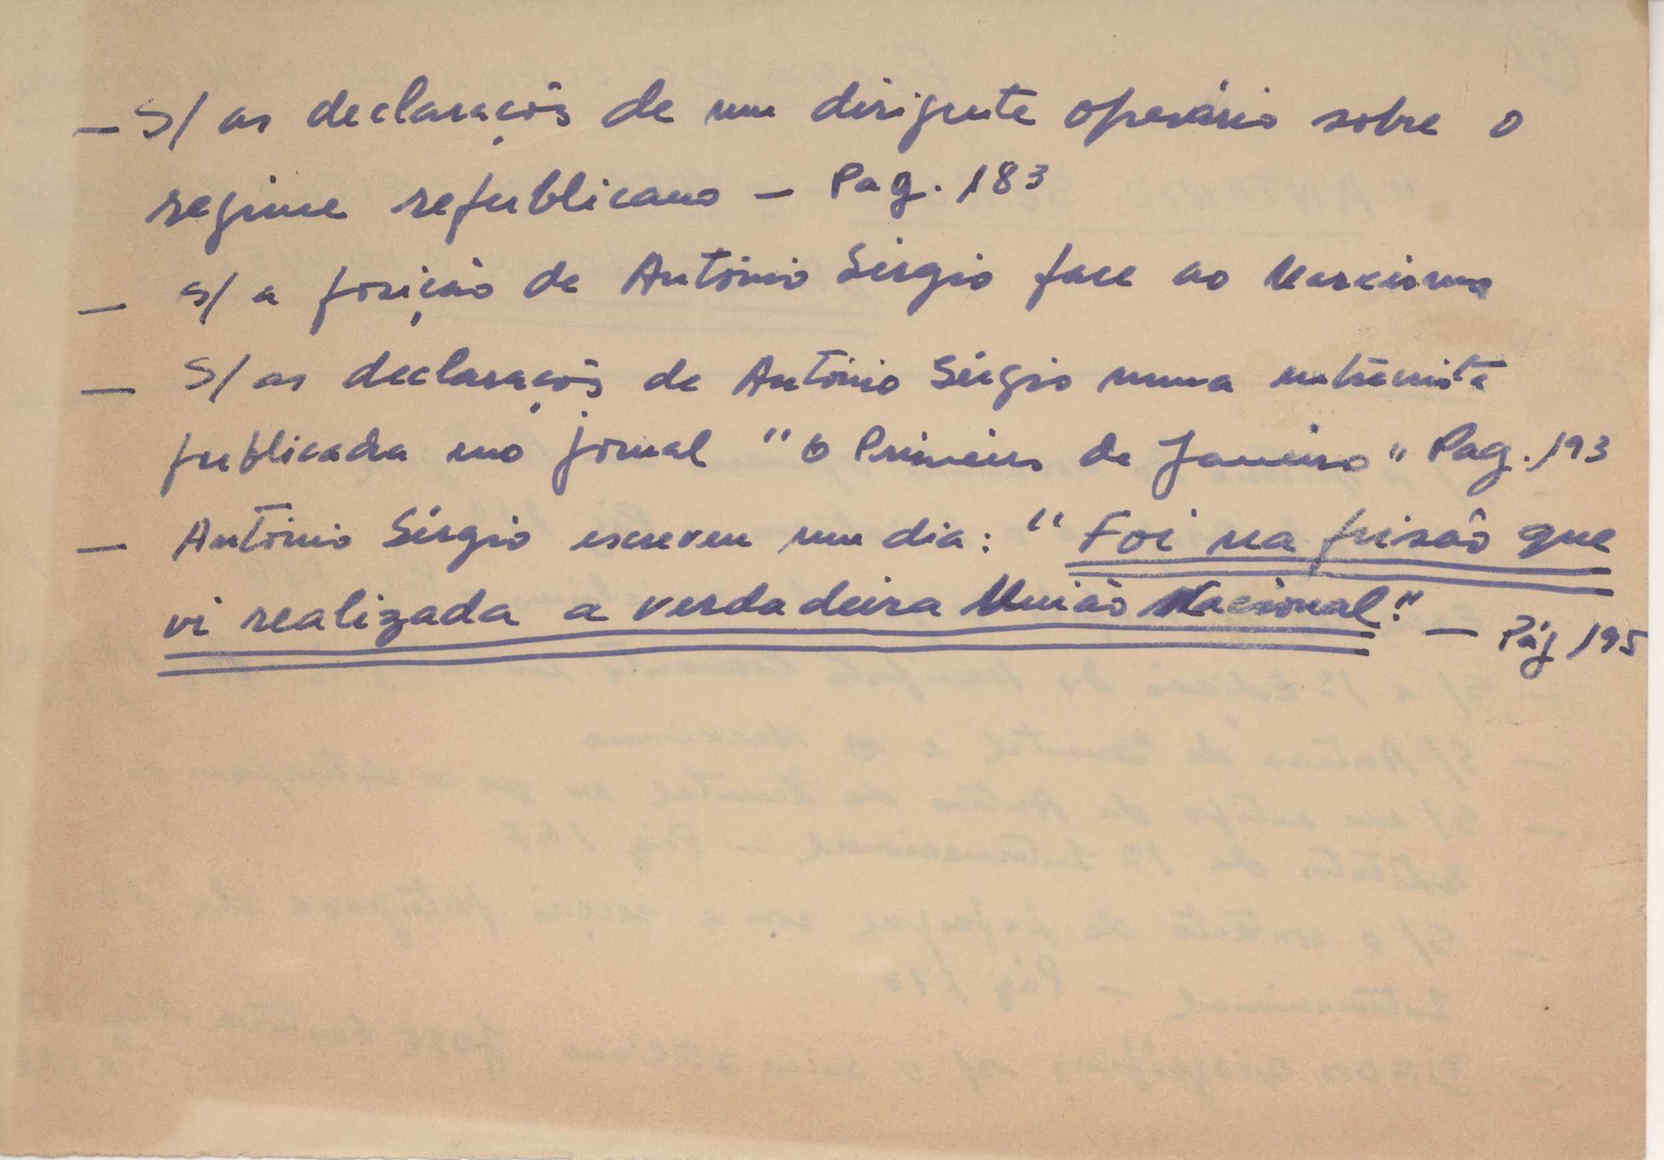 — S/ as declarações de um dirigente operário sobre o
regime republicano — Pag. 183
— S/ a posição de António Sérgio face ao Marxismo
— S/ as declarações de António Sérgio numa entrevista
publicada no jornal "O Primeiro de Janeiro" Pag. 193
— António Sérgio escreveu um dia: "Foi na prisão que
vi realizada a verdadeira União Nacional." — Pág 195